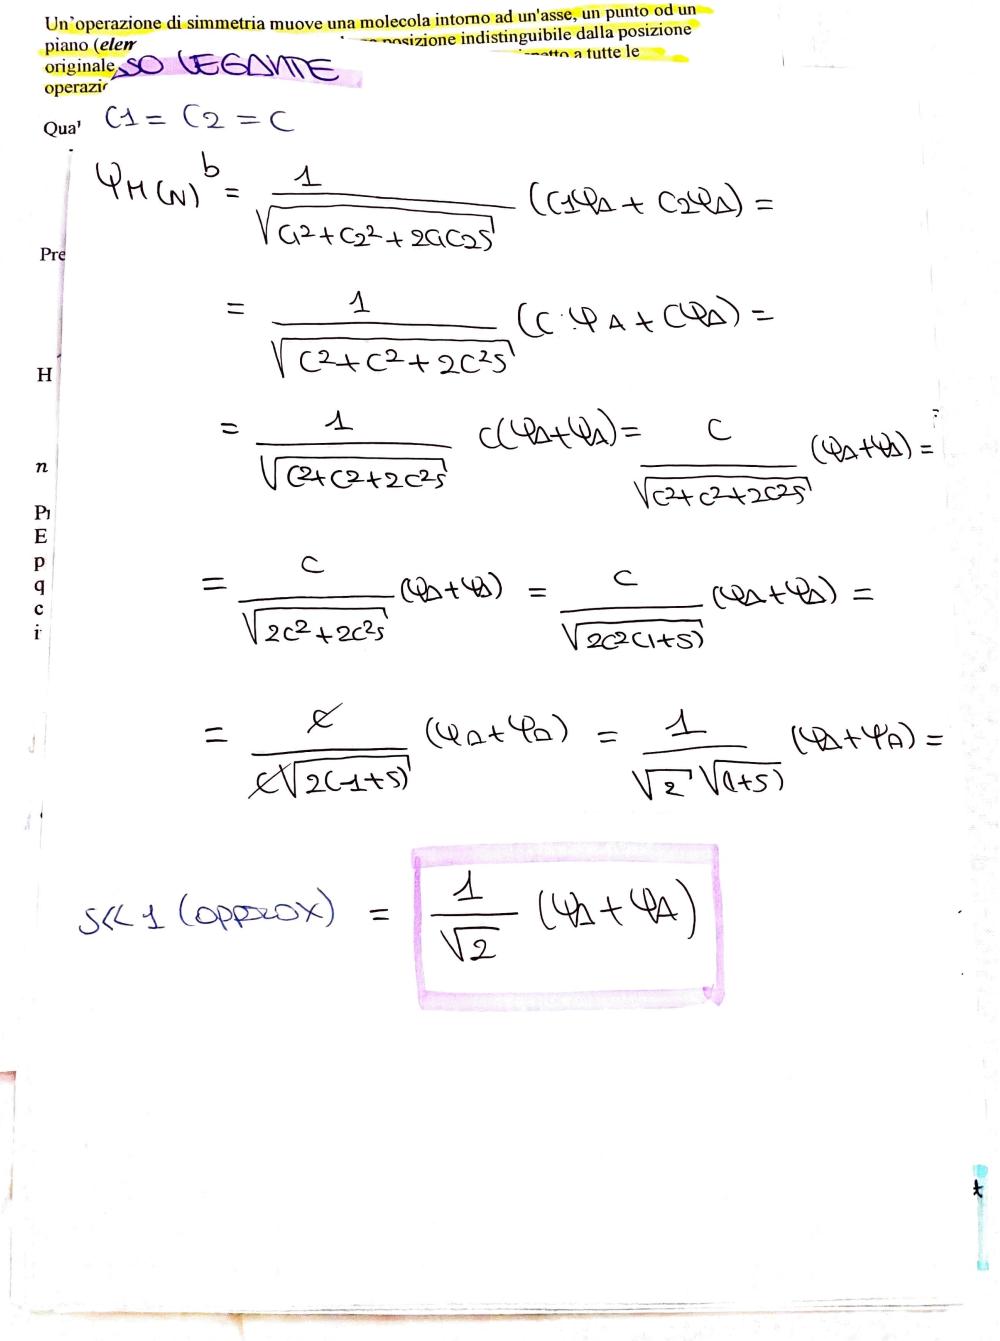 Un'operazione di simmetria muove una molecola intorno ad un'asse, un punto od un
piano (elem
posizione indistinguibile dalla posizione
originale,
SO LEGANTE
a tutte le
operazio
Qua'
C1 = C2 = C
φM(N)^b = 1/√(C1²+C2²+2C1C2S) (C1φA + C2φA) =
Pre
= 1/√(C²+C²+2C²S) (C·φA + CφA) =
H
= 1/√(C²+C²+2C²S) C(φA+φA) = C/√(C²+C²+2C²S) (φA+φA) =
n
P
E
p
q
c
i
= C/√(2C²+2C²S) (φA+φA) = C/√(2C²(1+S)) (φA+φA) =
= C/C√(2(1+S)) (φA+φA) = 1/√2 √(1+S) (φA+φA) =
S<<1 (approx) = 1/√2 (φA+φA)
t